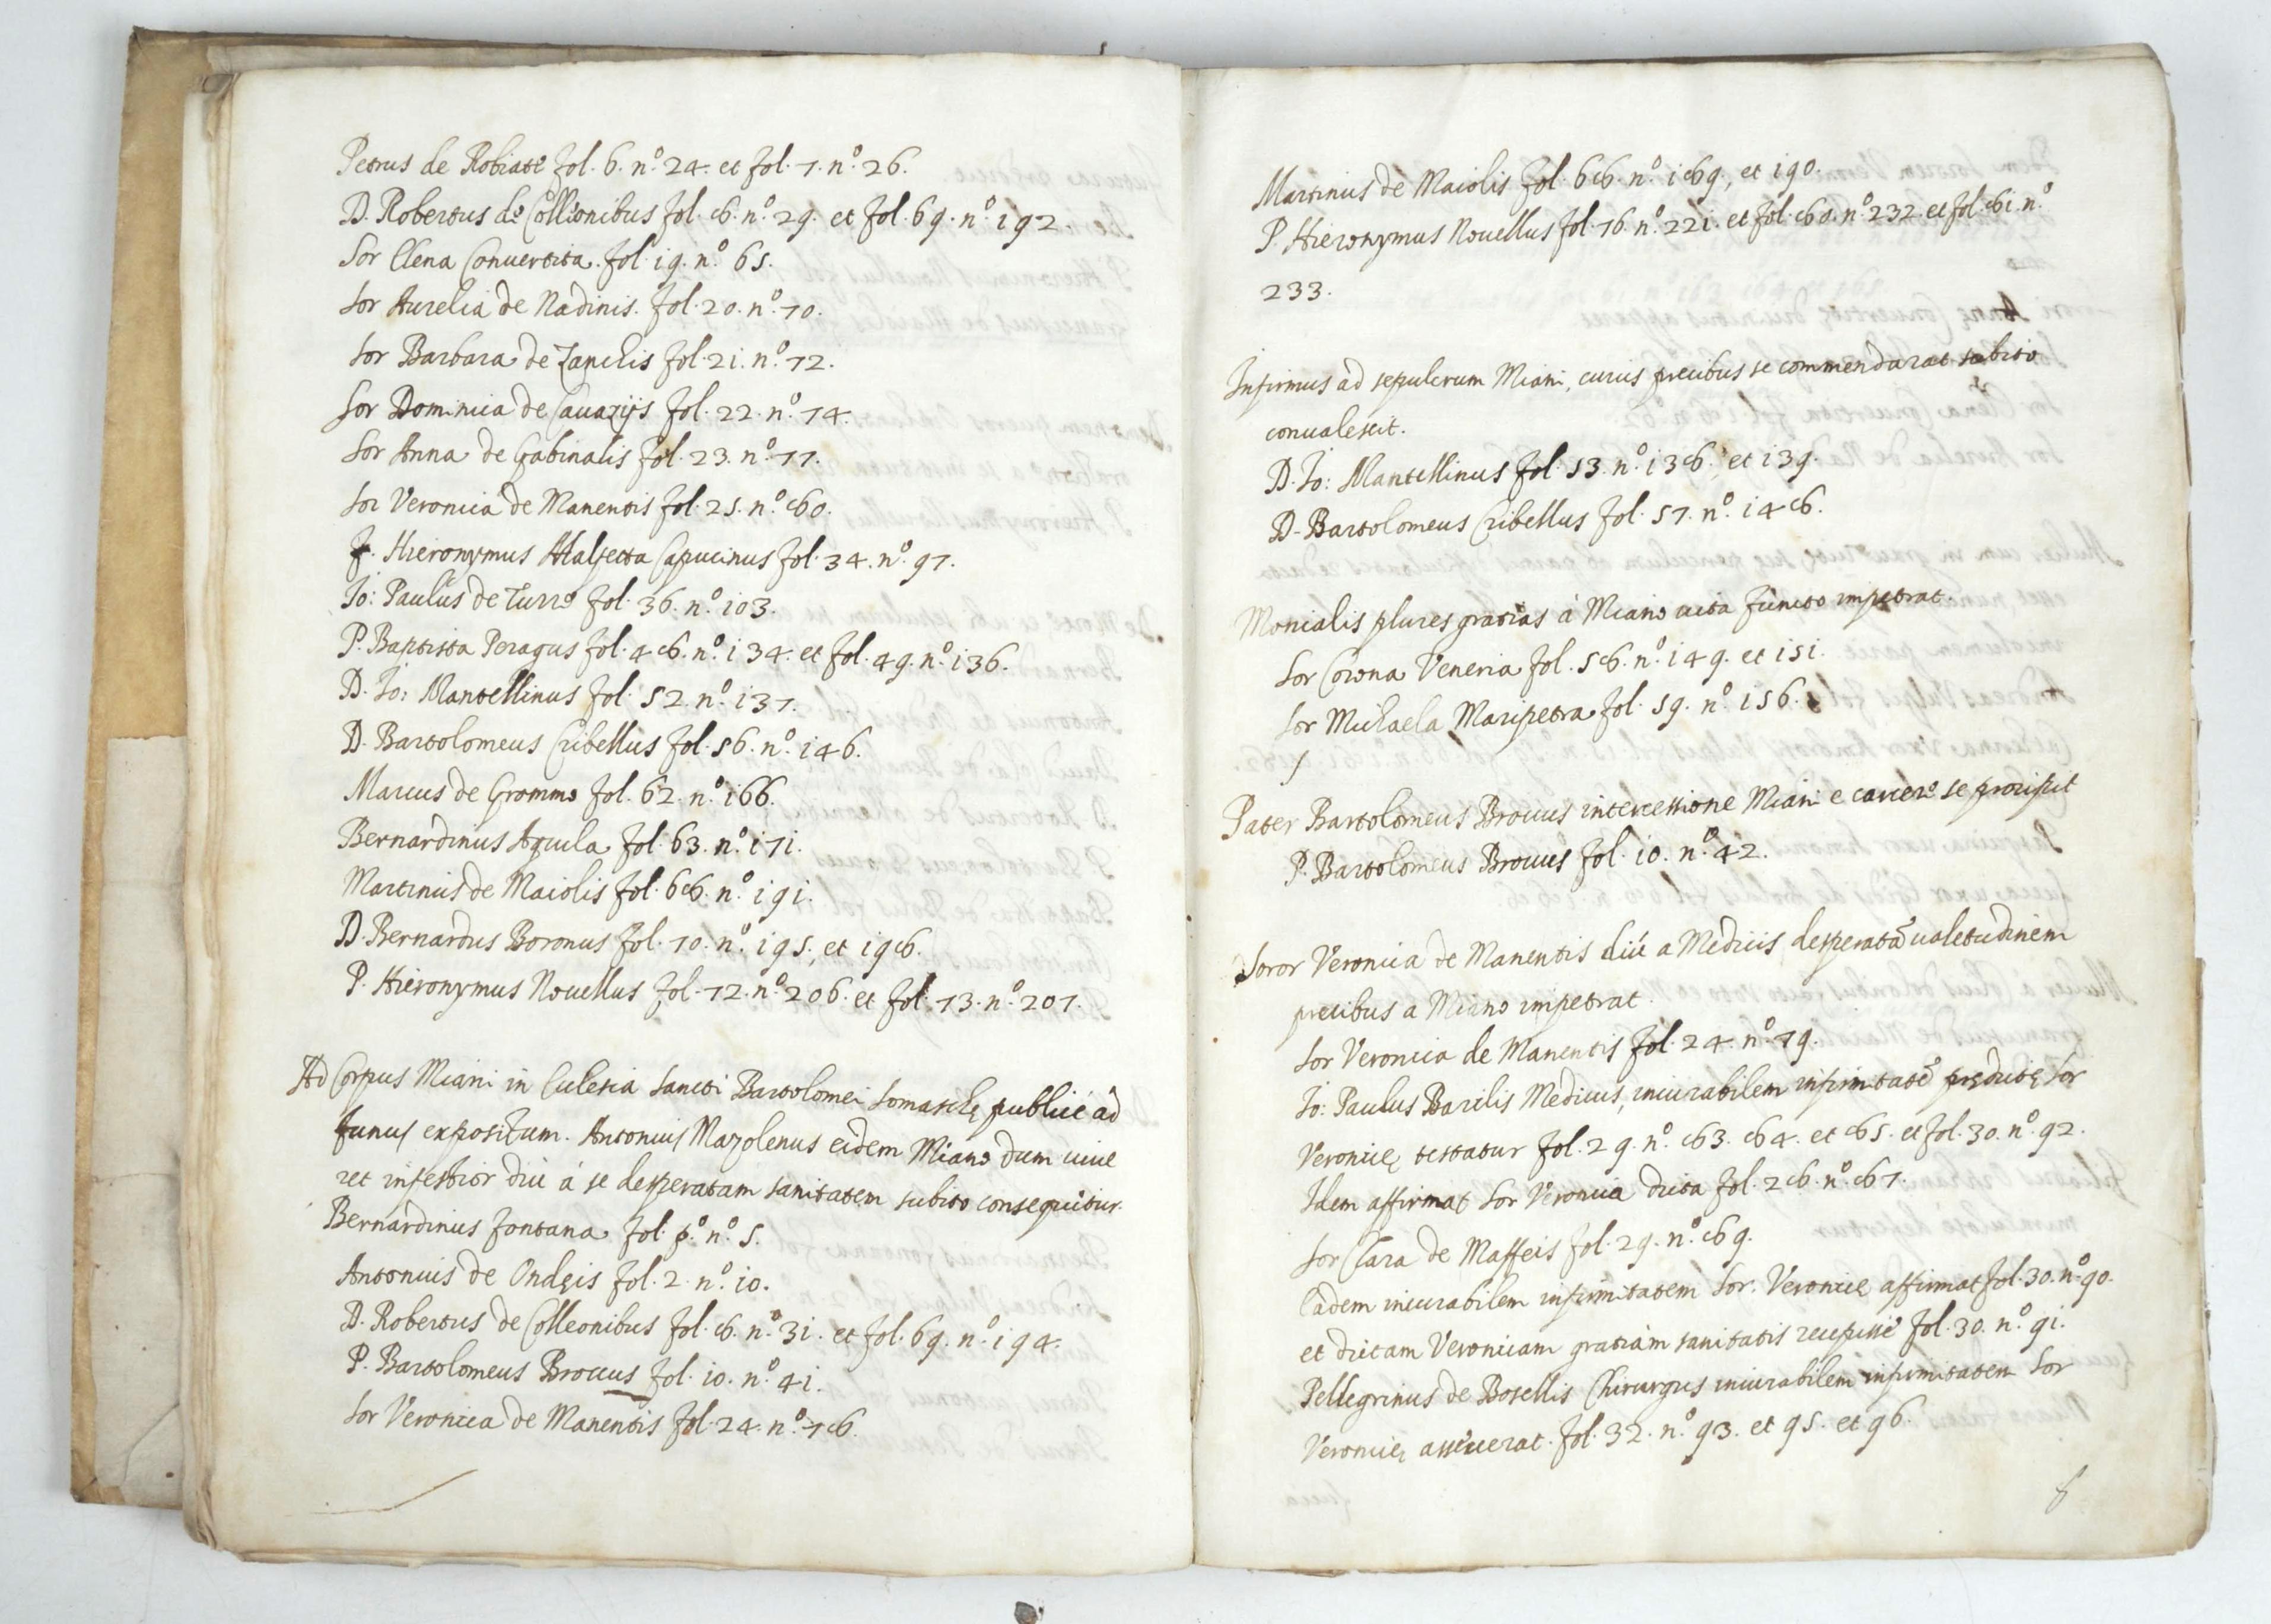 Petrus de Robiate fol. 6. nº. 24. et fol. 7. nº. 26.
D. Robertus de Collionibus fol. 8. nº. 29. et fol. 69. nº. 192.
Sor Elena Conuertita fol. 19. nº. 65.
Sor Aurelia de Nadinis. fol. 20. nº. 70.
Sor Barbara de Zanchis fol. 21. nº. 72.
Sor Dominica de Cauazijs fol. 22. nº. 74.
Sor Anna de Gabinalis fol. 23. nº. 77.
Sor Veronica de Manentis fol. 25. nº. 80.
F. Hieronymus Malfetta Capucinus fol. 34. nº. 97.
Io: Paulus de Turre fol. 36. nº. 103.
P. Baptista Peragus fol. 48. nº. 134. et fol. 49. nº. 136.
D. Io: Mantellinus fol. 52. nº. 137.
D. Bartolomeus Cribellus fol. 56. nº. 146.
Marcus de Grommo fol. 62. nº. 166.
Bernardinus Aquila fol. 63. nº. 171.
Martinus de Maiolis fol. 68. nº. 191.
D. Bernardus Boronus fol. 70. nº. 195, et 198.
P. Hieronymus Nouellus fol. 72. nº. 206. et fol. 73. nº. 207.
Ad Corpus Miani in Eclesia Sancti Bartolomei Somaschę publicè ad
funus expositum. Antonius Mazolenus eidem Miano dum uiue
ret infestior diù à se desperatam sanitatem subito consequitur.
Bernardinus Fontana fol. pº. nº. 5.
Antonius de Ondeis fol. 2. nº. 10.
D. Robertus de Colleonibus fol. 8. nº. 31. et fol. 69. nº. 194.
P. Bartolomeus Broccus fol. 10. nº. 41.
Sor Veronica de Manentis fol. 24. nº. 78.
Martinus de Maiolis fol. 68. nº. 189, et 190.
P. Hieronymus Nouellus fol. 76. nº. 221. et fol. 80. nº. 232. et fol. 81. nº.
233.
Infirmus ad sepulcrum Miani, cuius precibus se commendarat subito
conualescit.
D. Io: Mantellinus fol. 53. nº. 138. et 139.
D. Bartolomeus Cribellus fol. 57. nº. 148.
Monialis plures gratias à Miano uita functo impetrat.
Sor Corona Veneria fol. 58. nº. 149. et 151.
Sor Michaela Maripetra fol. 59. nº. 156.
Pater Bartolomeus Broccus intercessione Miani e carcere se proripit
P. Bartolomeus Broccus fol. 10. nº. 42.
Soror Veronica de Manentis diù a Medicis desperatā ualetudinem
precibus a Miano impetrat.
Sor Veronica de Manentis fol. 24. nº. 79.
Io: Paulus Barilis Medicus, incurabilem infirmitatē prędictę Sor
Veronicę testatur fol. 29. nº. 83. 84. et 85. et fol. 30. nº. 92.
Idem affirmat Sor Veronica dicta fol. 28. nº. 87.
Sor Clara de Maffeis fol. 29. nº. 89.
Eadem incurabilem infirmitatem Sor. Veronicę affirmat fol. 30. nº. 90.
et dictam Veronicam gratiam sanitatis recepisse fol. 30. nº. 91.
Pellegrinus de Bosellis Chirurgus incurabilem infirmitatem Sor
Veronicę asseuerat. fol. 32. nº. 93. et 95. et 96.